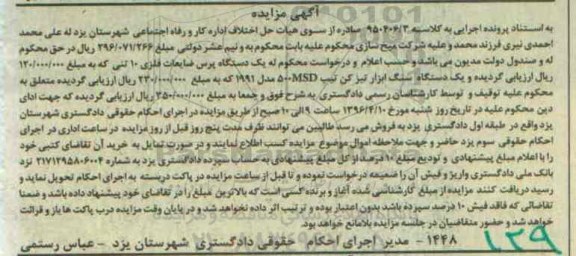 آگهی مزایده
به استناد پرونده اجرایی به کلاسه ۹۵۰۴۰۶/۳ صادره از سوی هیات حل اختلاف اداره کار و رفاه اجتماعی شهرستان یزد له علی محمد
احمدی نیری فرزند محمد و علیه شرکت میخ سازی محکوم علیه بابت محکوم به و نیم عشر دولتی مبلغ ۲۹۶/۰۷۱/۲۶۶ ریال در حق محکوم
له و صندوق دولت مدیون می باشد و حسب اعلام و درخواست محکوم له یک دستگاه پرس ضایعات فلزی ۱۰ تنی که به مبلغ ۱۲۰/۰۰۰/۰۰۰
ریال ارزیابی گردیده و یک دستگاه سنگ ابزار تیز کن تیپ ۵۰۰MSD مدل ۱۹۹۱ که به مبلغ ۲۳۰/۰۰۰/۰۰۰ ریال ارزیابی گردیده متعلق به
محکوم علیه توقیف و توسط کارشناسان رسمی دادگستری به شرح فوق و جمعا به مبلغ ۳۵۰/۰۰۰/۰۰۰ ریال ارزیابی گردیده که جهت ادای
دین محکوم علیه در تاریخ روز شنبه مورخ ۱۳۹۶/۴/۱۰ ساعت ۹ الی ۱۰ صبح از طریق مزایده در اجرای احکام حقوقی دادگستری شهرستان
یزد واقع در طبقه اول دادگستری یزد به فروش می رسد طالبین می توانند ظرف مدت پنج روز قبل از روز مزایده در ساعت اداری در اجرای
احکام حقوقی سوم یزد حاضر و جهت ملاحظه اموال موضوع مزایده کسب اطلاع نمایند و در صورت تمایل به خرید آن تقاضای کتبی خود
را با اعلام مبلغ پیشنهادی و تودیع مبلغ ۱۰ درصد از کل مبلغ پیشنهادی به حساب سپرده دادگستری یزد به شماره ۲۱۷۱۲۹۵۸۰۶۰۰۴ نزد
بانک ملی دادگستری واریز و فیش آن را ضمیمه درخواست نموده و تا قبل از ساعت مزایده در پاکت دربسته به اجرای احکام تحویل نماید و
رسید دریافت کنند مزایده از مبلغ کارشناسی شده آغاز و برنده کسی است که بالاترین مبلغ را در تقاضای خود پیشنهاد داده باشد و ضمنا
تقاضائی که فاقد فیش ۱۰ درصد سپرده باشد بدون اعتبار بوده و ترتیب اثر داده نخواهد شد و در پایان وقت مزایده درب پاکت ها باز و قرائت
خواهد شد و حضور متقاضیان در جلسه مزایده بلامانع خواهد بود.
۱۴۴۸ - مدیر اجرای احکام حقوقی دادگستری شهرستان یزد - عباس رستمی
۱۲۹